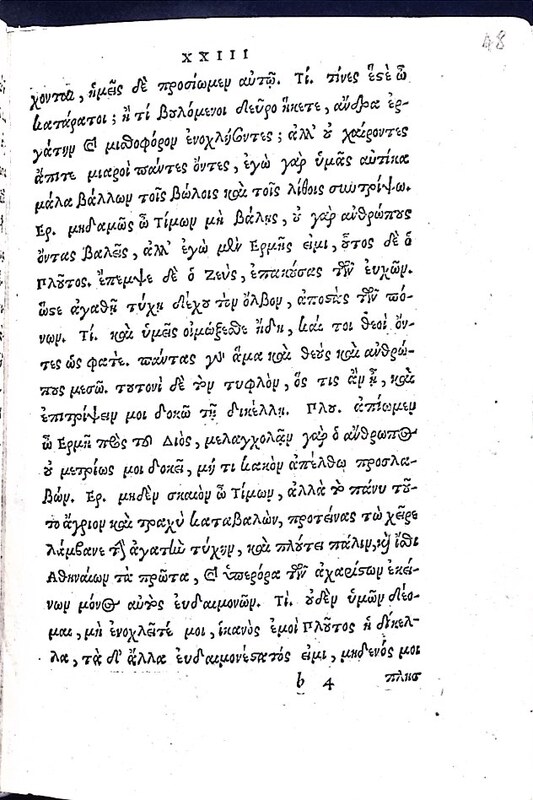 48
XXIII
χονται, ἡμεῖς δὲ προσίωμεν αὐτῷ. Τί. τίνες ἔστὲ ὦ
κατάρατοι; ἢ τί βουλόμενοι δεῦρο ἥκετε, ἄνδρα ἐρ-
γάτην καὶ μισθοφόρον ἐνοχλήσοντες; ἀλλ' οὐ χαίροντες
ἄπιτε μιαροὶ πάντες ὄντες, ἐγὼ γὰρ ὑμᾶς αὐτίκα
μάλα βάλλων τοῖς βώλοις καὶ τοῖς λίθοις συντρίψω.
Ερ. μηδαμῶς ὦ Τίμων μὴ βάλῃς, οὐ γὰρ ἀνθρώπους
ὄντας βαλεῖς, ἀλλ' ἐγὼ μὲν Ερμῆς εἰμι, οὗτος δὲ ὁ
Πλοῦτος. ἔπεμψε δὲ ὁ Ζεὺς, ἐπακούσας τῶν εὐχῶν.
ὥστε ἀγαθῇ τύχῃ δέχου τὸν ὄλβον, ἀποστὰς τῶν πό-
νων. Τί. καὶ ὑμεῖς οἰμώξεσθε ἤδη, καί τοι θεοὶ ὄν-
τες ὥς φατε. πάντας γὰρ ἅμα καὶ θεοὺς καὶ ἀνθρώ-
πους μισῶ. τουτονὶ δὲ τὸν τυφλὸν, ὅς τις ἂν ᾖ, καὶ
ἐπιτρίψειν μοι δοκῶ τῇ δικέλλῃ. Πλου. ἀπίωμεν
ὦ Ερμῆ πρὸς τοῦ Διὸς, μελαγχολᾷν γὰρ ὁ ἄνθρωπος
οὐ μετρίως μοι δοκεῖ, μή τι κακὸν ἀπέλθω προσλα-
βών. Ερ. μηδὲν σκαιὸν ὦ Τίμων, ἀλλὰ τὸ πάνυ τοῦ-
το ἄγριον καὶ τραχὺ καταβαλὼν, προτείνας τὼ χεῖρε
λάμβανε τὴν ἀγαθὴν τύχην, καὶ πλούτει πάλιν, καὶ ἴσθι
Αθηναίων τὰ πρῶτα, καὶ ὑπερόρα τῶν ἀχαρίστων ἐκεί-
νων μόνος αὐτὸς εὐδαιμονῶν. Τί. οὐδὲν ὑμῶν δέο-
μαι, μὴ ἐνοχλεῖτέ μοι, ἱκανὸς ἐμοὶ Πλοῦτος ἡ δίκελ-
λα, τὰ δ' ἄλλα εὐδαιμονέστατός εἰμι, μηδενός μοι
b 4 πλησ